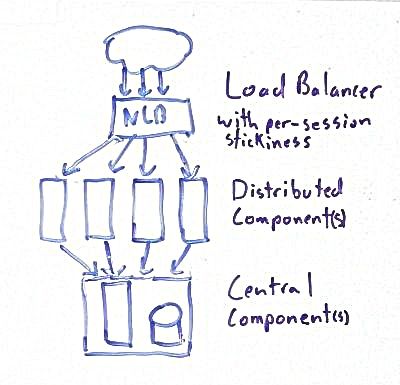 Load Balancer
NLB
with per-session
stickiness
Distributed
Component(s)
Central
Component(s)